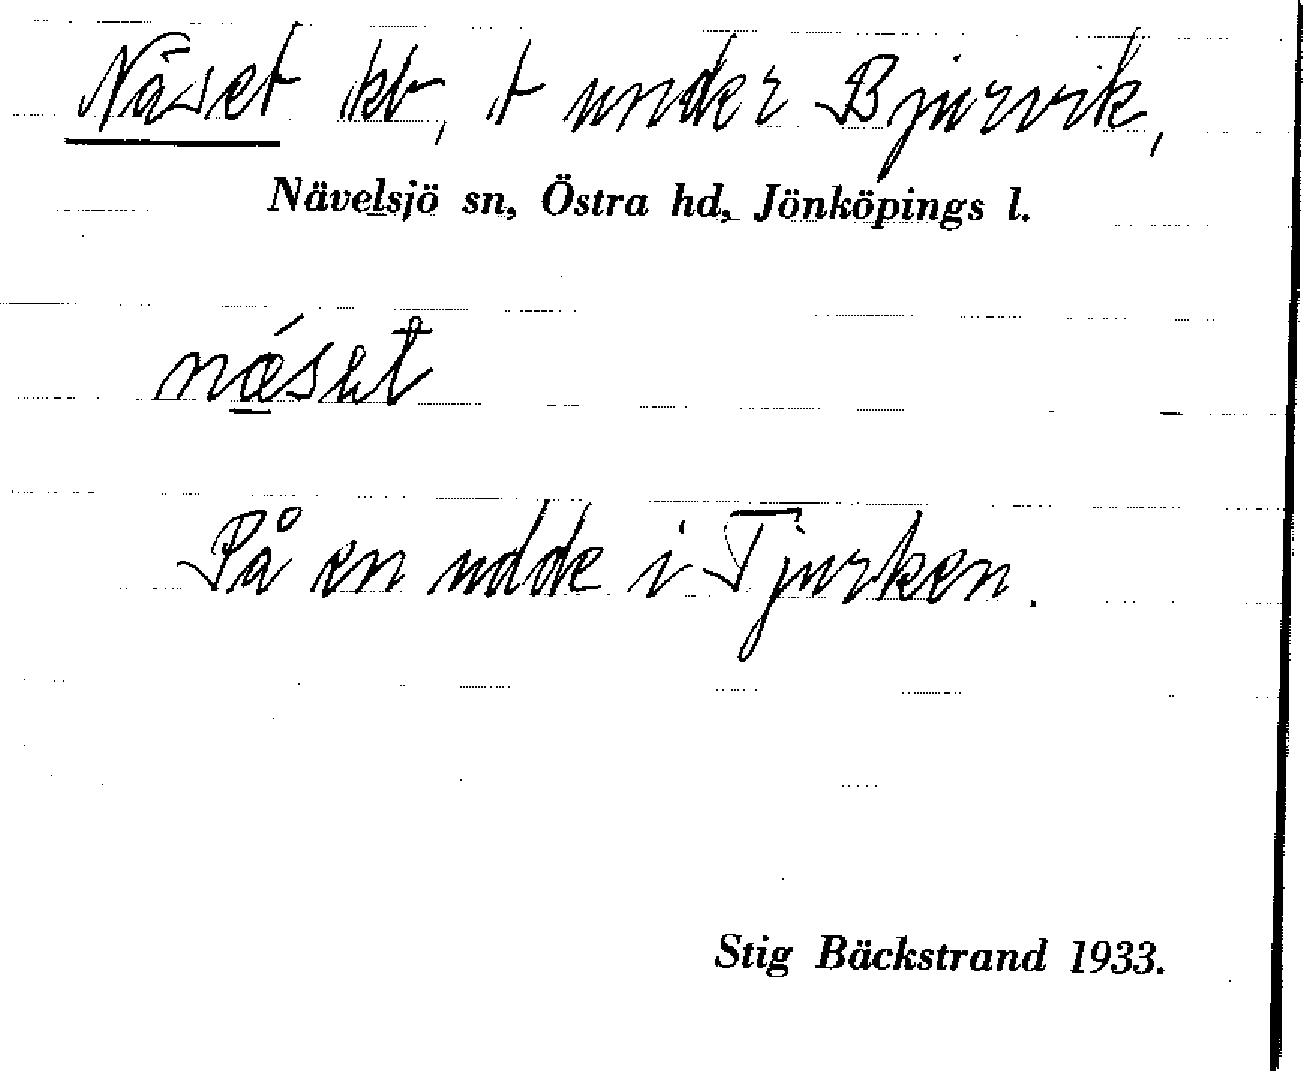 Näset kt, t under Bjurvik,
Nävelsjö sn, Östra hd, Jönköpings l.
På en udde i Tjurken.
Stig Bäckstrand 1933.